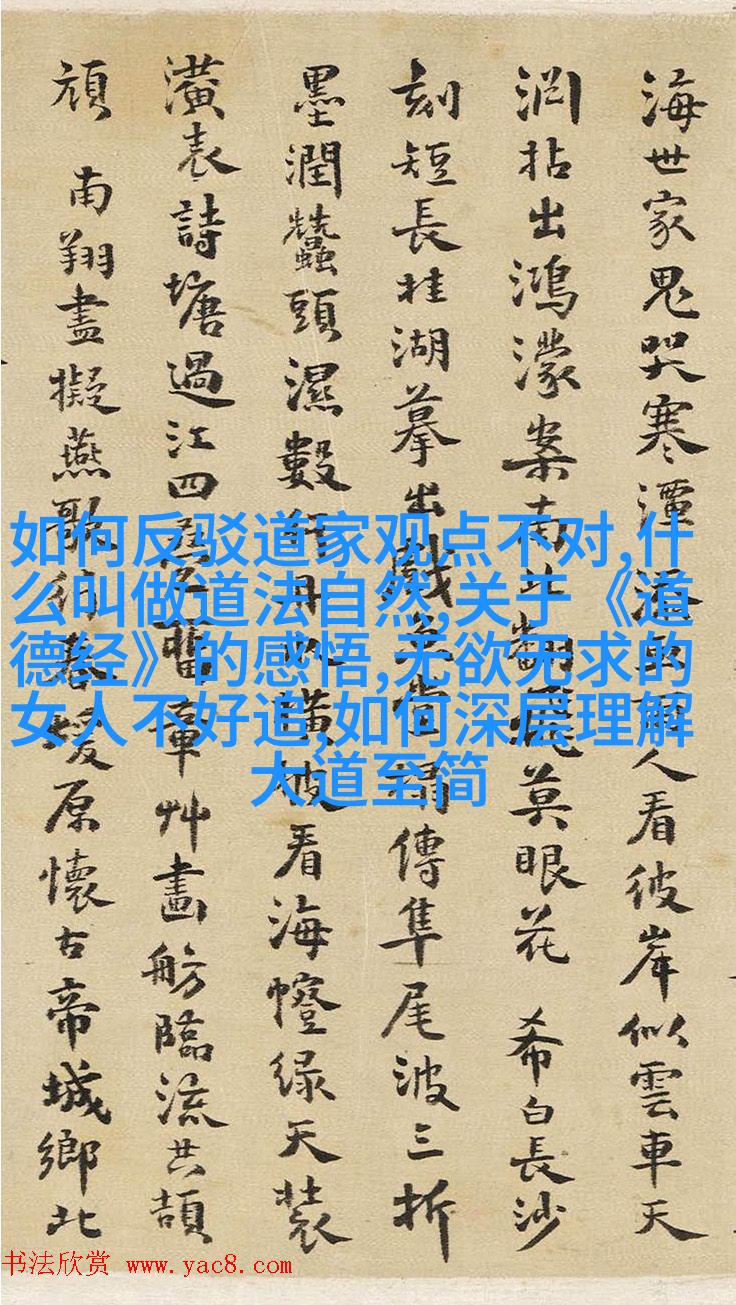 海世家鬼哭寒潭 人看彼岸似雲車天
拈出鴻濛案南北翻 莫眼花 希白長沙
刻短長桂湖摹出戲 傳隼尾波三折
墨潤蠶頭濕數行丹 橫披看海幢緑天裝
潢表詩塘過江四舊 章艸畫舫臨流共頡
頏 南翔盡擬燕歌行 原懷古帝城鄉北
如何反驳道家观点不对,什
么叫做道法自然,关于《道
德经》的感悟,无欲无求的
女人不好追,如何深层理解
大道至简
书法欣赏 www.yac8.com